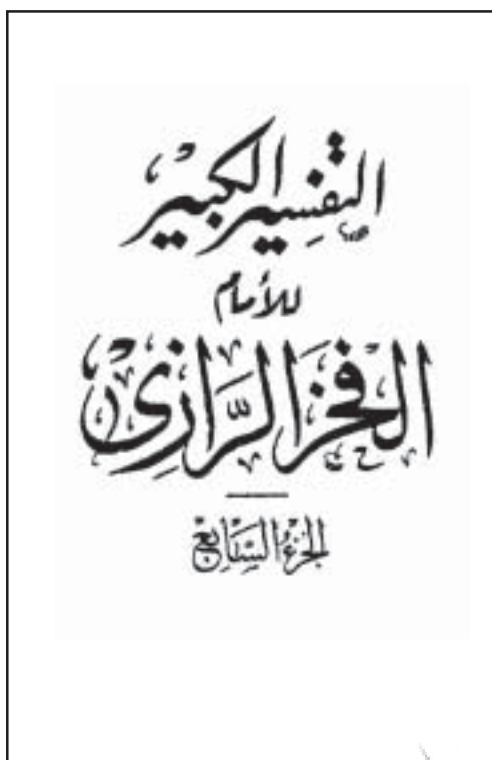 التفسير الكبير
للأمام
الفخر الرازي
الجزء السابع